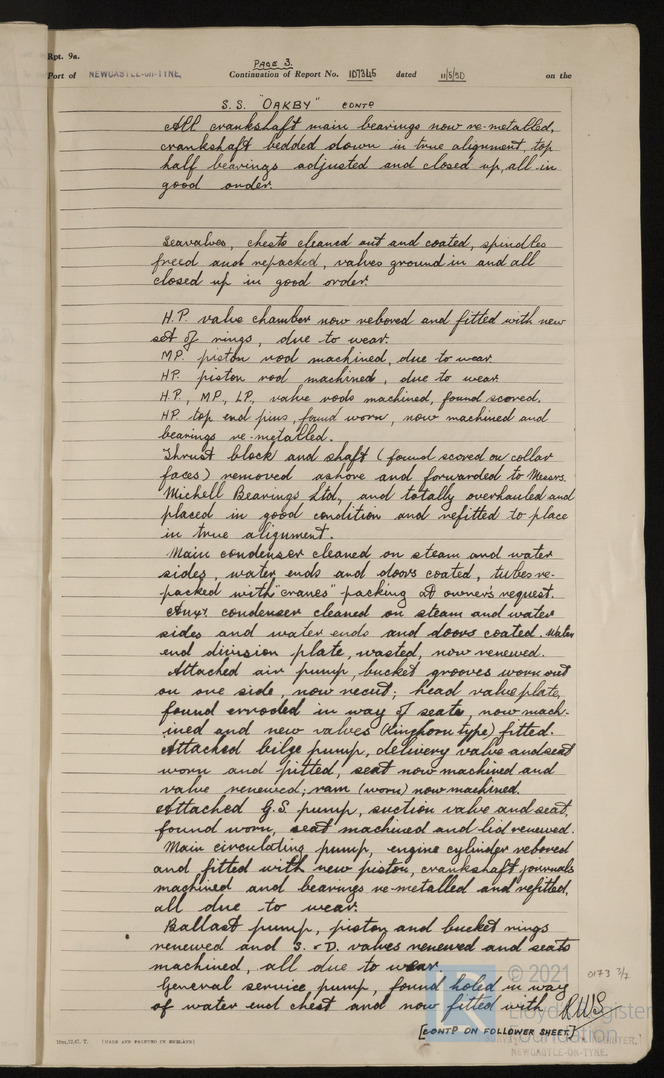 Rpt. 9a.
PAGE 3.
Port of NEWCASTLE-on-TYNE, Continuation of Report No. 107345 dated 11/5/50 on the
S.S. "OAKBY" CONTD
All crankshaft main bearings now re-metalled,
crankshaft bedded down in true alignment, top
half bearings adjusted and closed up, all in
good order.
Seavalves, chests cleaned out and coated, spindles
freed and repacked, valves ground in and all
closed up in good order.
H.P. valve chamber now rebored and fitted with new
set of rings, due to wear.
MP. piston rod machined, due to wear.
HP. piston rod machined, due to wear.
H.P., MP., LP., valve rods machined, found scored.
HP. top end pins, found worn, now machined and
bearings re-metalled.
Thrust block and shaft (found scored on collar
faces) removed ashore and forwarded to Messrs.
Michell Bearings Ltd., and totally overhauled and
placed in good condition and refitted to place
in true alignment.
Main condenser cleaned on steam and water
sides, water ends and doors coated, tubes re-
packed with "cranes" packing at owner's request.
Auxy. condenser cleaned on steam and water
sides and water ends and doors coated. Water
end division plate, wasted, now renewed.
Attached air pump, bucket grooves worn out
on one side, now recut; head valve plate,
found erroded in way of seats, now mach-
ined and new valves (Kinghorn type) fitted.
Attached bilge pump, delivery valve and seat
worn and pitted, seat now machined and
valve renewed; ram (worn) now machined.
Attached G.S pump, suction valve and seat,
found worn, seat machined and lid renewed.
Main circulating pump, engine cylinder rebored
and fitted with new piston, crankshaft journals
machined and bearings re-metalled and refitted,
all due to wear.
Ballast pump, piston and bucket rings
renewed and S. & D. valves renewed and seats
machined, all due to wear.
General service pump, found holed in way
of water end chest and now fitted with
RWS
[CONTD ON FOLLOWER SHEET]
0173 3/2
© 2021
Lloyd's Register
Foundation
NEWCASTLE-ON-TYNE.
(MADE AND PRINTED IN ENGLAND)